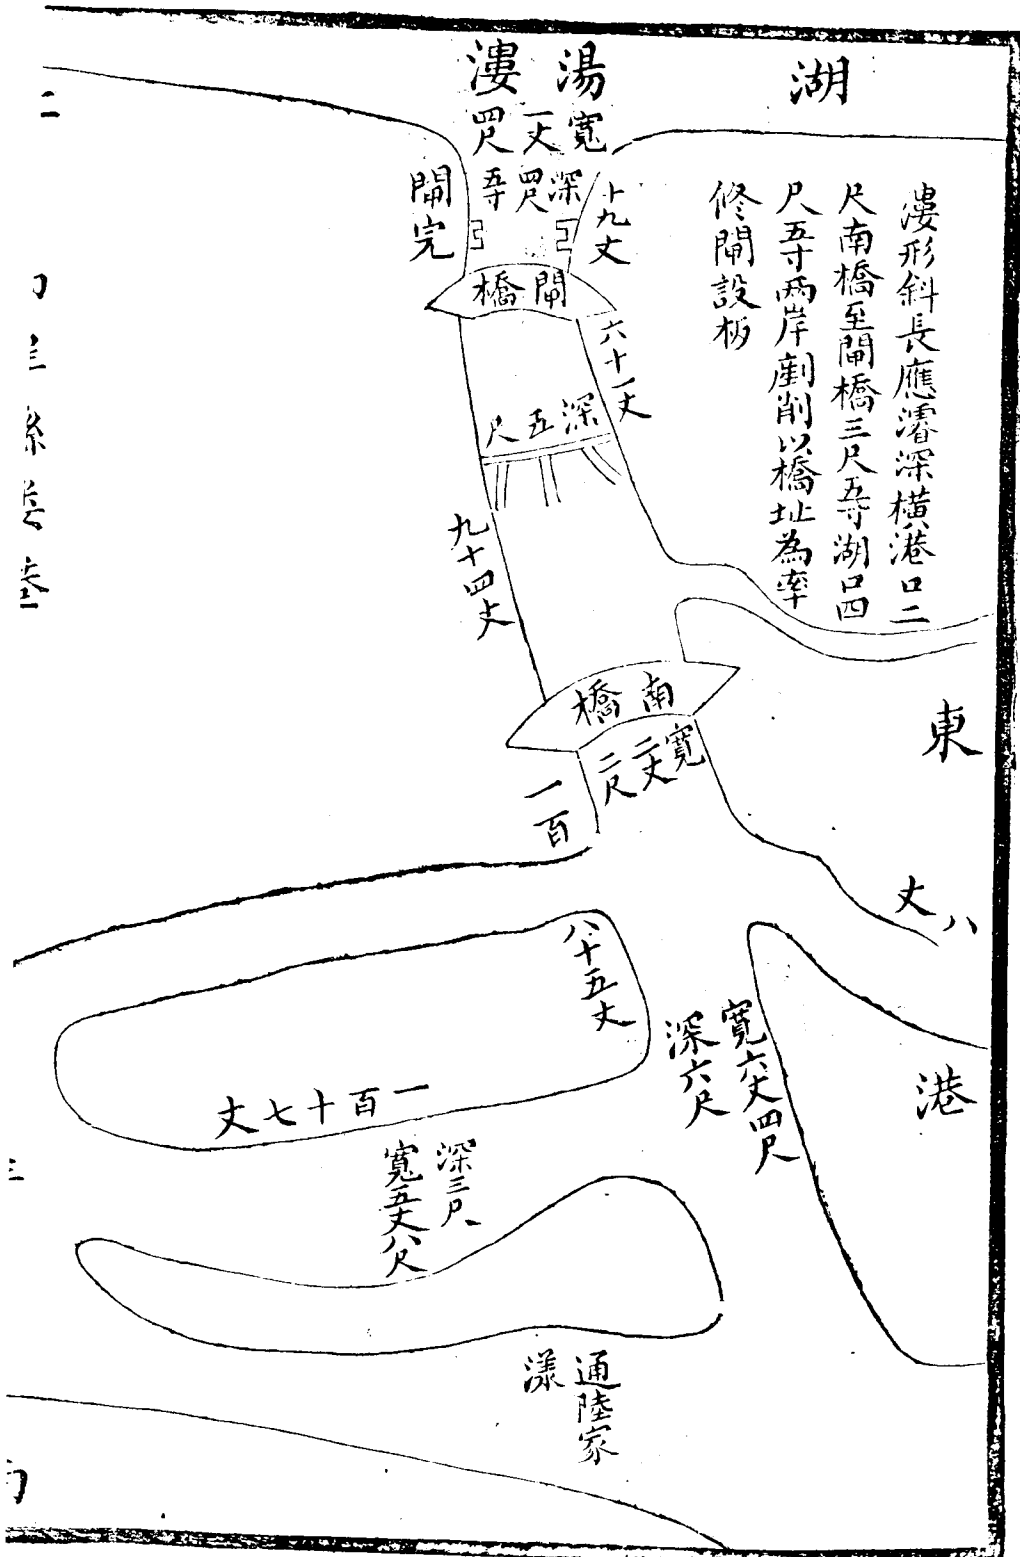 湖
漊形斜長應濬深橫港口二
尺南橋至閘橋三尺五寸湖口四
尺五寸兩岸剷削以橋址為率
修閘設板
湯漊
寬一丈四尺
深四尺五寸
十九丈
閘完
閘橋
六十一丈
深五尺
九十四丈
南橋
寬二丈二尺
一百
東
八丈
港
八十五丈
寬六丈四尺
深六尺
一百十七丈
深三尺
寬五丈八尺
通陸家
漾
二